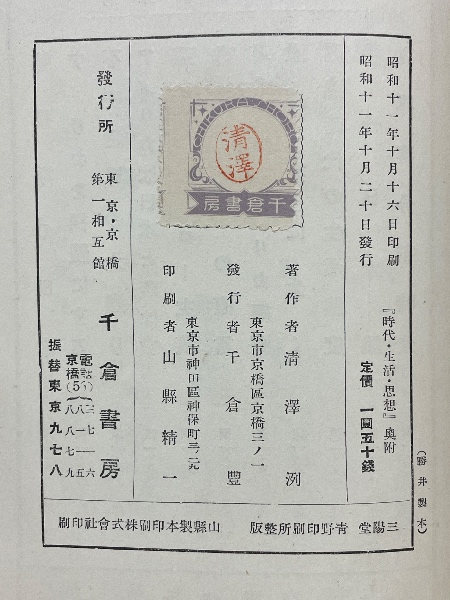 昭和十一年十月十六日印刷
昭和十一年十月二十日發行
『時代・生活・思想』奧附
定價 一圓五十錢
CHIKURA SHOBO
清澤
千倉書房
著作者 清澤洌
東京市京橋區京橋三ノ一
發行者 千倉豐
東京市神田區神保町三ノ元
印刷者 山縣精一
發行所
東京・京橋
第一相互館
千倉書房
電話
京橋(56)
三七一六
八八一五
八八七九
振替東京九七八
三陽堂 青野印刷所整版 山縣製本印刷株式會社印刷
(勝井製本)